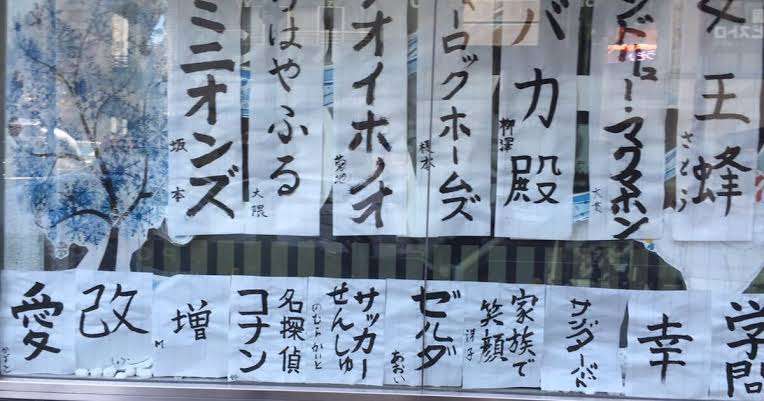 ビストロ
女王蜂
さとう
ンドリュー・マクマホン
バカ殿
柳澤
ーロックホームズ
榎本
オイホノオ
菊池
はやふる
大隈
ミニオンズ
坂本
学問
幸
家族で
笑顔
洋子
ゼルダ
あおい
サッカー
せんしゅ
名探偵
コナン
増
M
改
愛